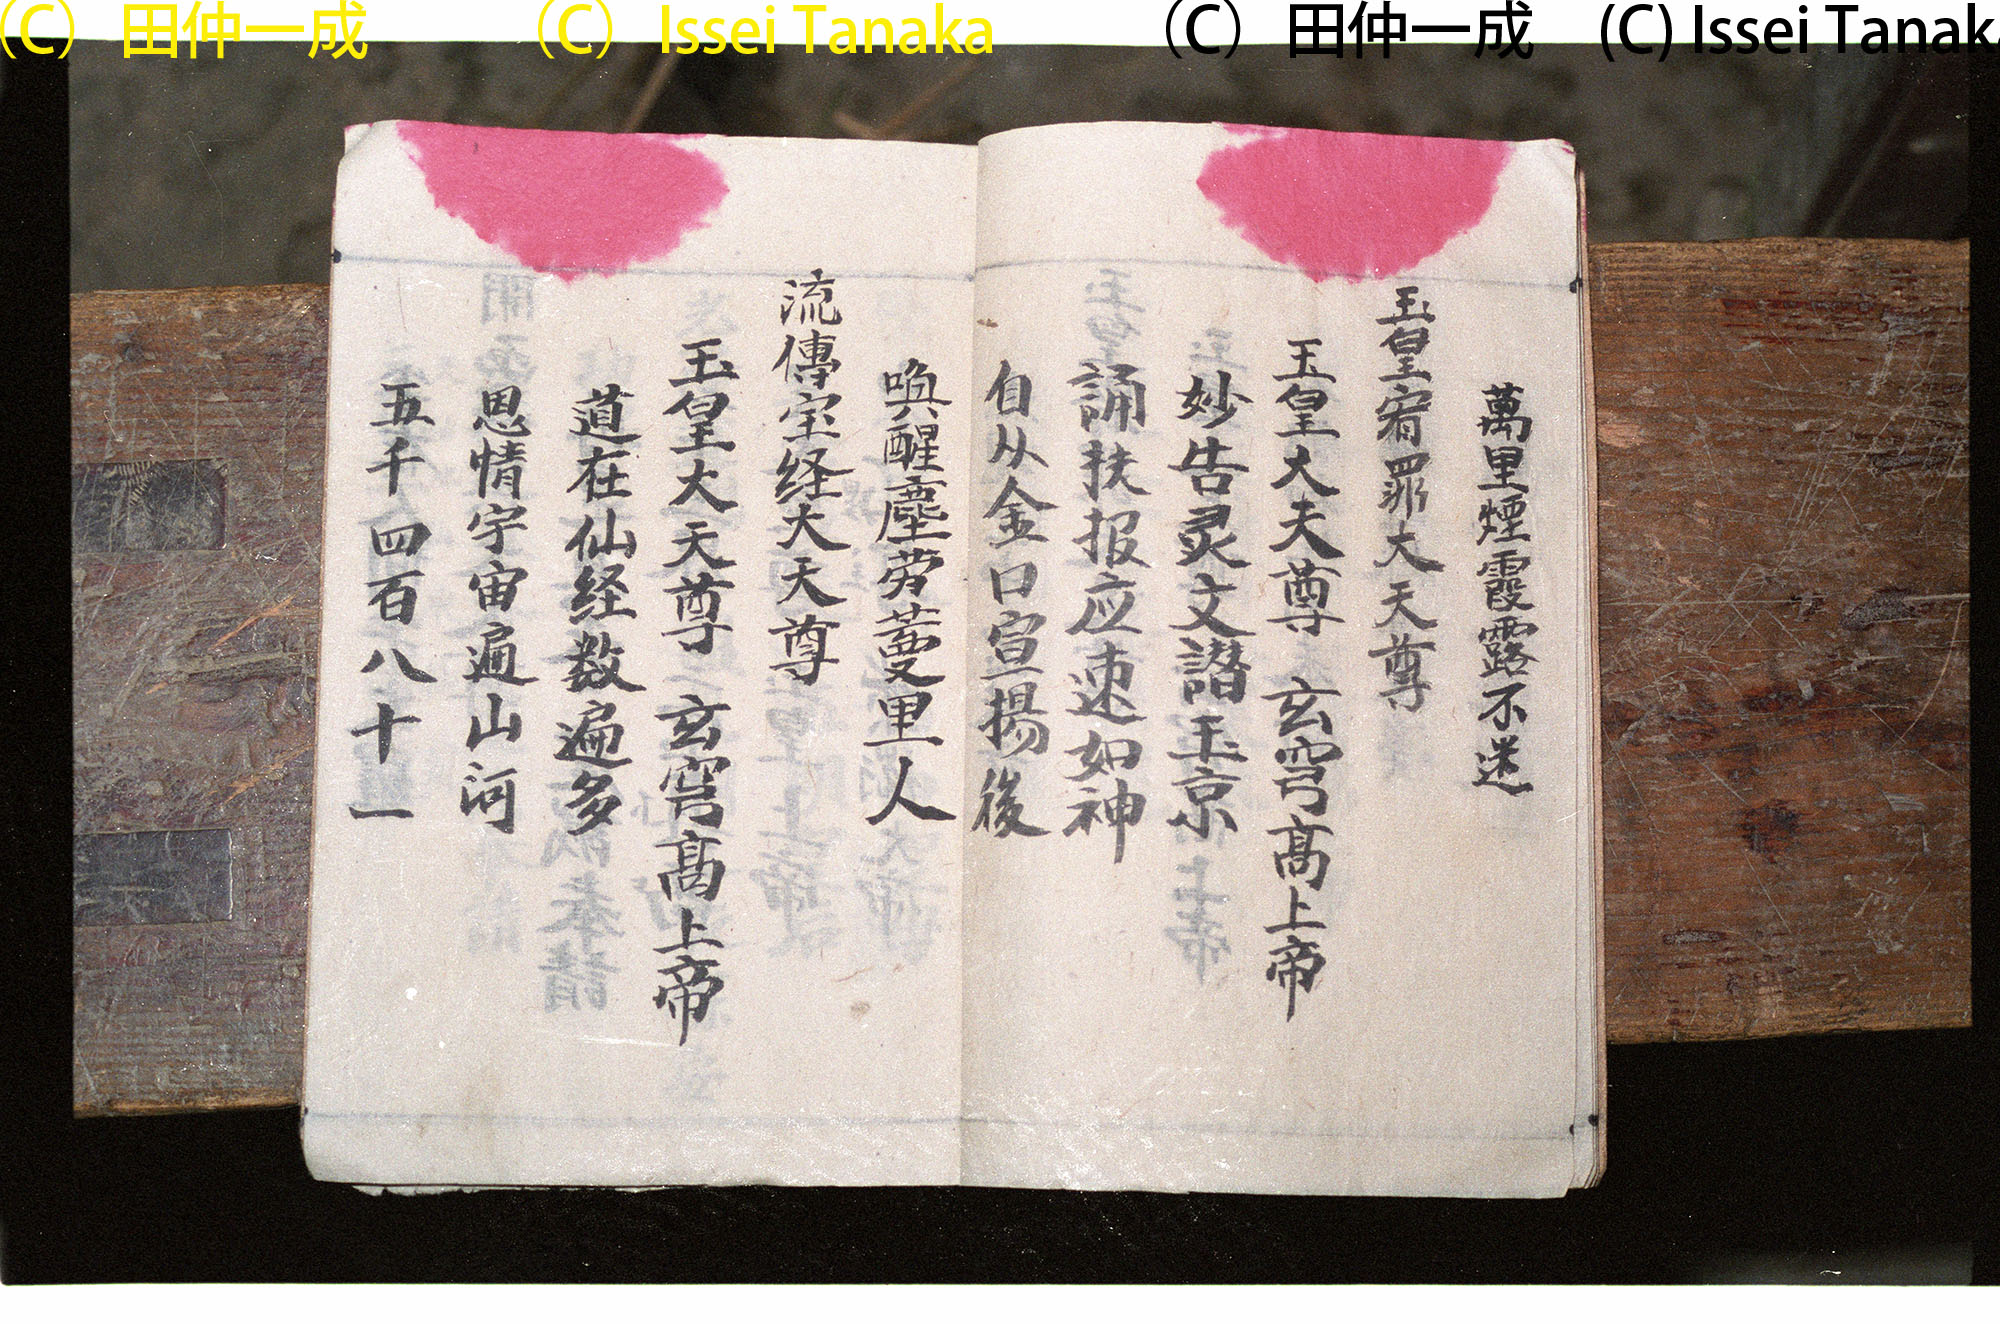 (C) 田仲一成 (C) Issei Tanaka (C) 田仲一成 (C) Issei Tanaka
萬里煙霞露不迷
玉皇宥罪大天尊
玉皇大天尊 玄穹高上帝
妙告灵文諧玉京
誦扶报应速如神
自从金口宣揚後
喚醒塵劳薹里人
流傳宝经大天尊
玉皇大天尊 玄穹高上帝
道在仙経数遍多
恩情宇宙遍山河
五千四百八十一